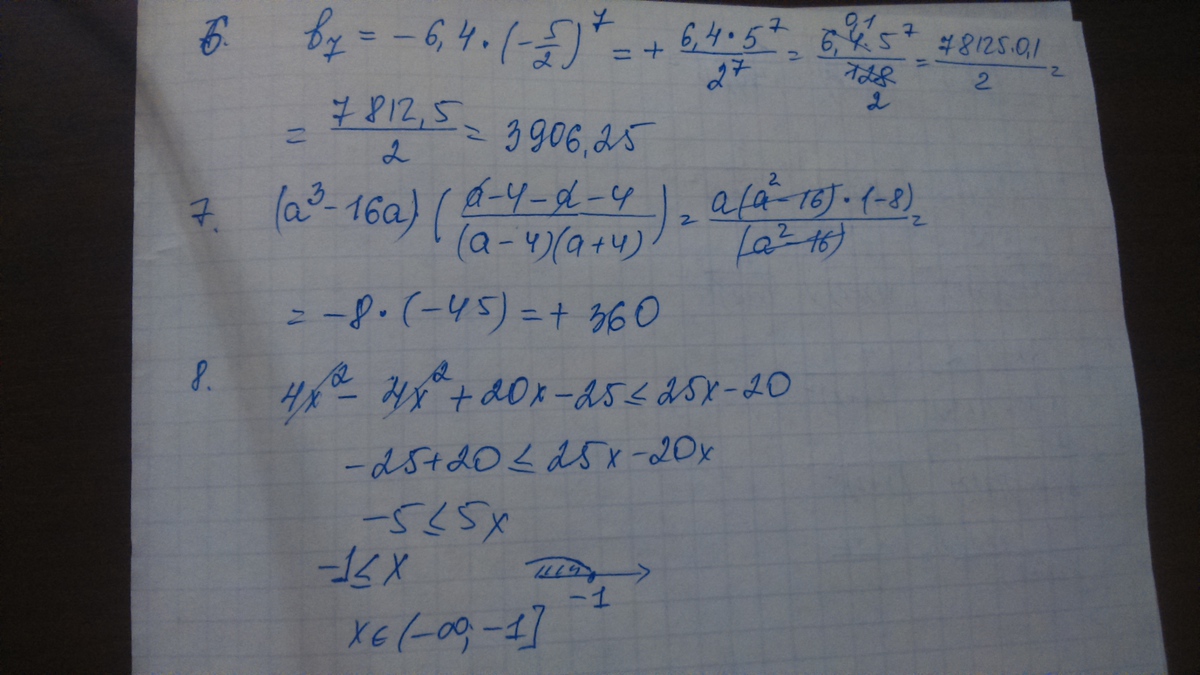 6. b₇ = -6,4 · (-5/2)⁷ = + 6,4·5⁷/2⁷ = 6,4·5⁷/128 0,1 2 = 78125·0,1/2 =
= 7812,5/2 = 3906,25
7. (a³-16a) (a-4-a-4/(a-4)(a+4)) = a(a²-16)·(-8)/(a²-16) =
= -8·(-45) = + 360
8. 4x² - 4x² + 20x - 25 ≤ 25x - 20
-25+20 ≤ 25x-20x
-5 ≤ 5x
-1 ≤ x
-1
x ∈ (-∞; -1]